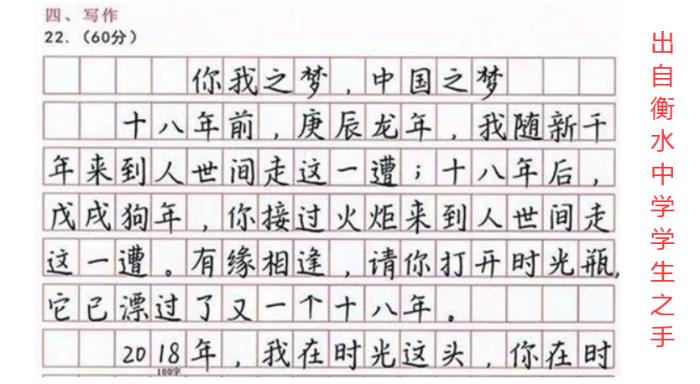 四、写作
22.（60分）
你我之梦，中国之梦
十八年前，庚辰龙年，我随新千
年来到人世间走这一遭；十八年后，
戊戌狗年，你接过火炬来到人世间走
这一遭。有缘相逢，请你打开时光瓶，
它已漂过了又一个十八年。
2018年，我在时光这头，你在时
100字
出自衡水中学学生之手